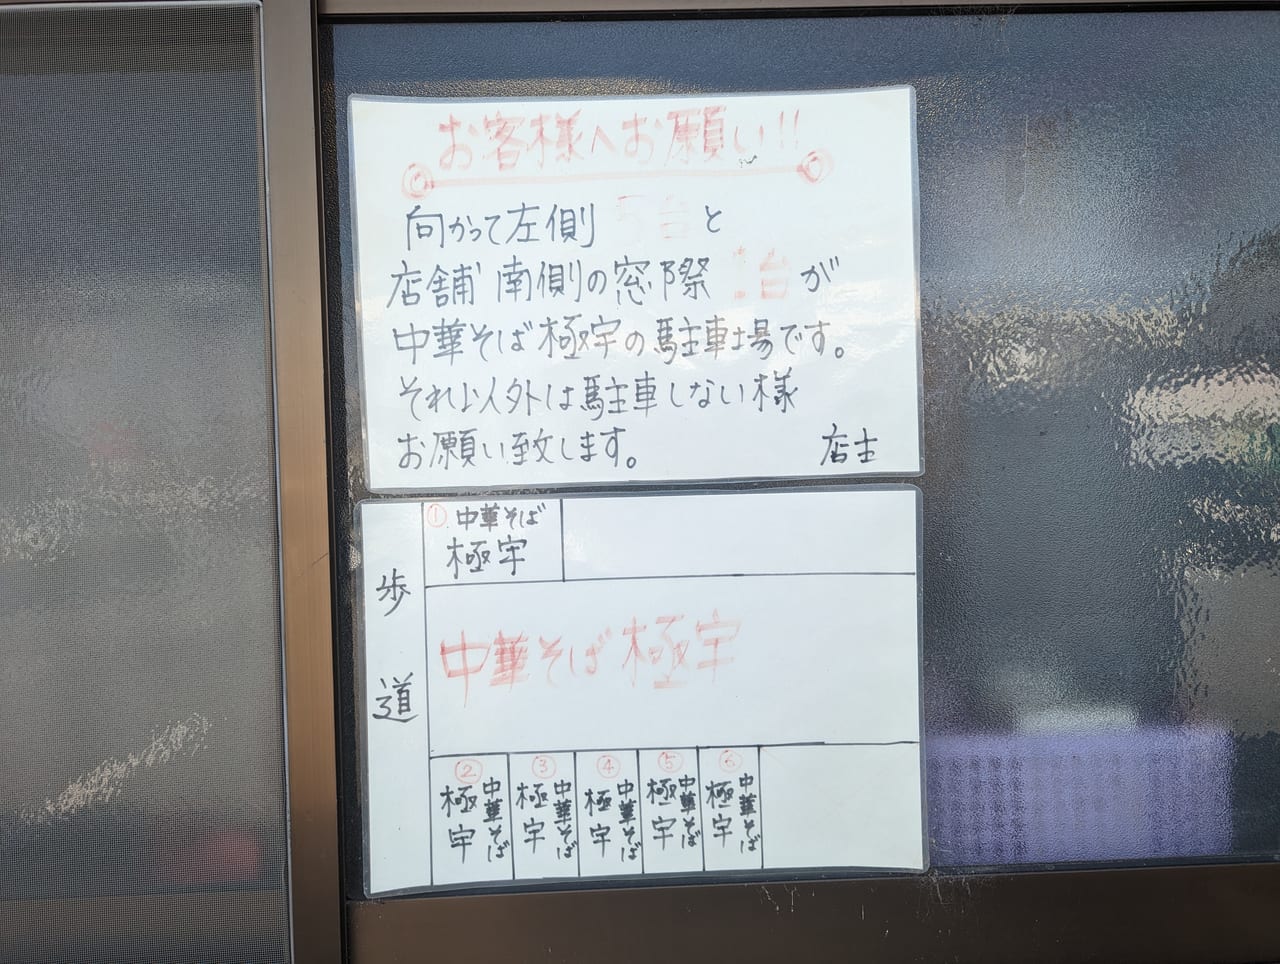 お客様へお願い!!
向かって左側 5台と
店舗南側の窓際 1台が
中華そば極宇の駐車場です。
それ以外は駐車しない様
お願い致します。 店主
歩道
① 中華そば
極宇
中華そば極宇
② 中華そば極宇
③ 中華そば極宇
④ 中華そば極宇
⑤ 中華そば極宇
⑥ 中華そば極宇